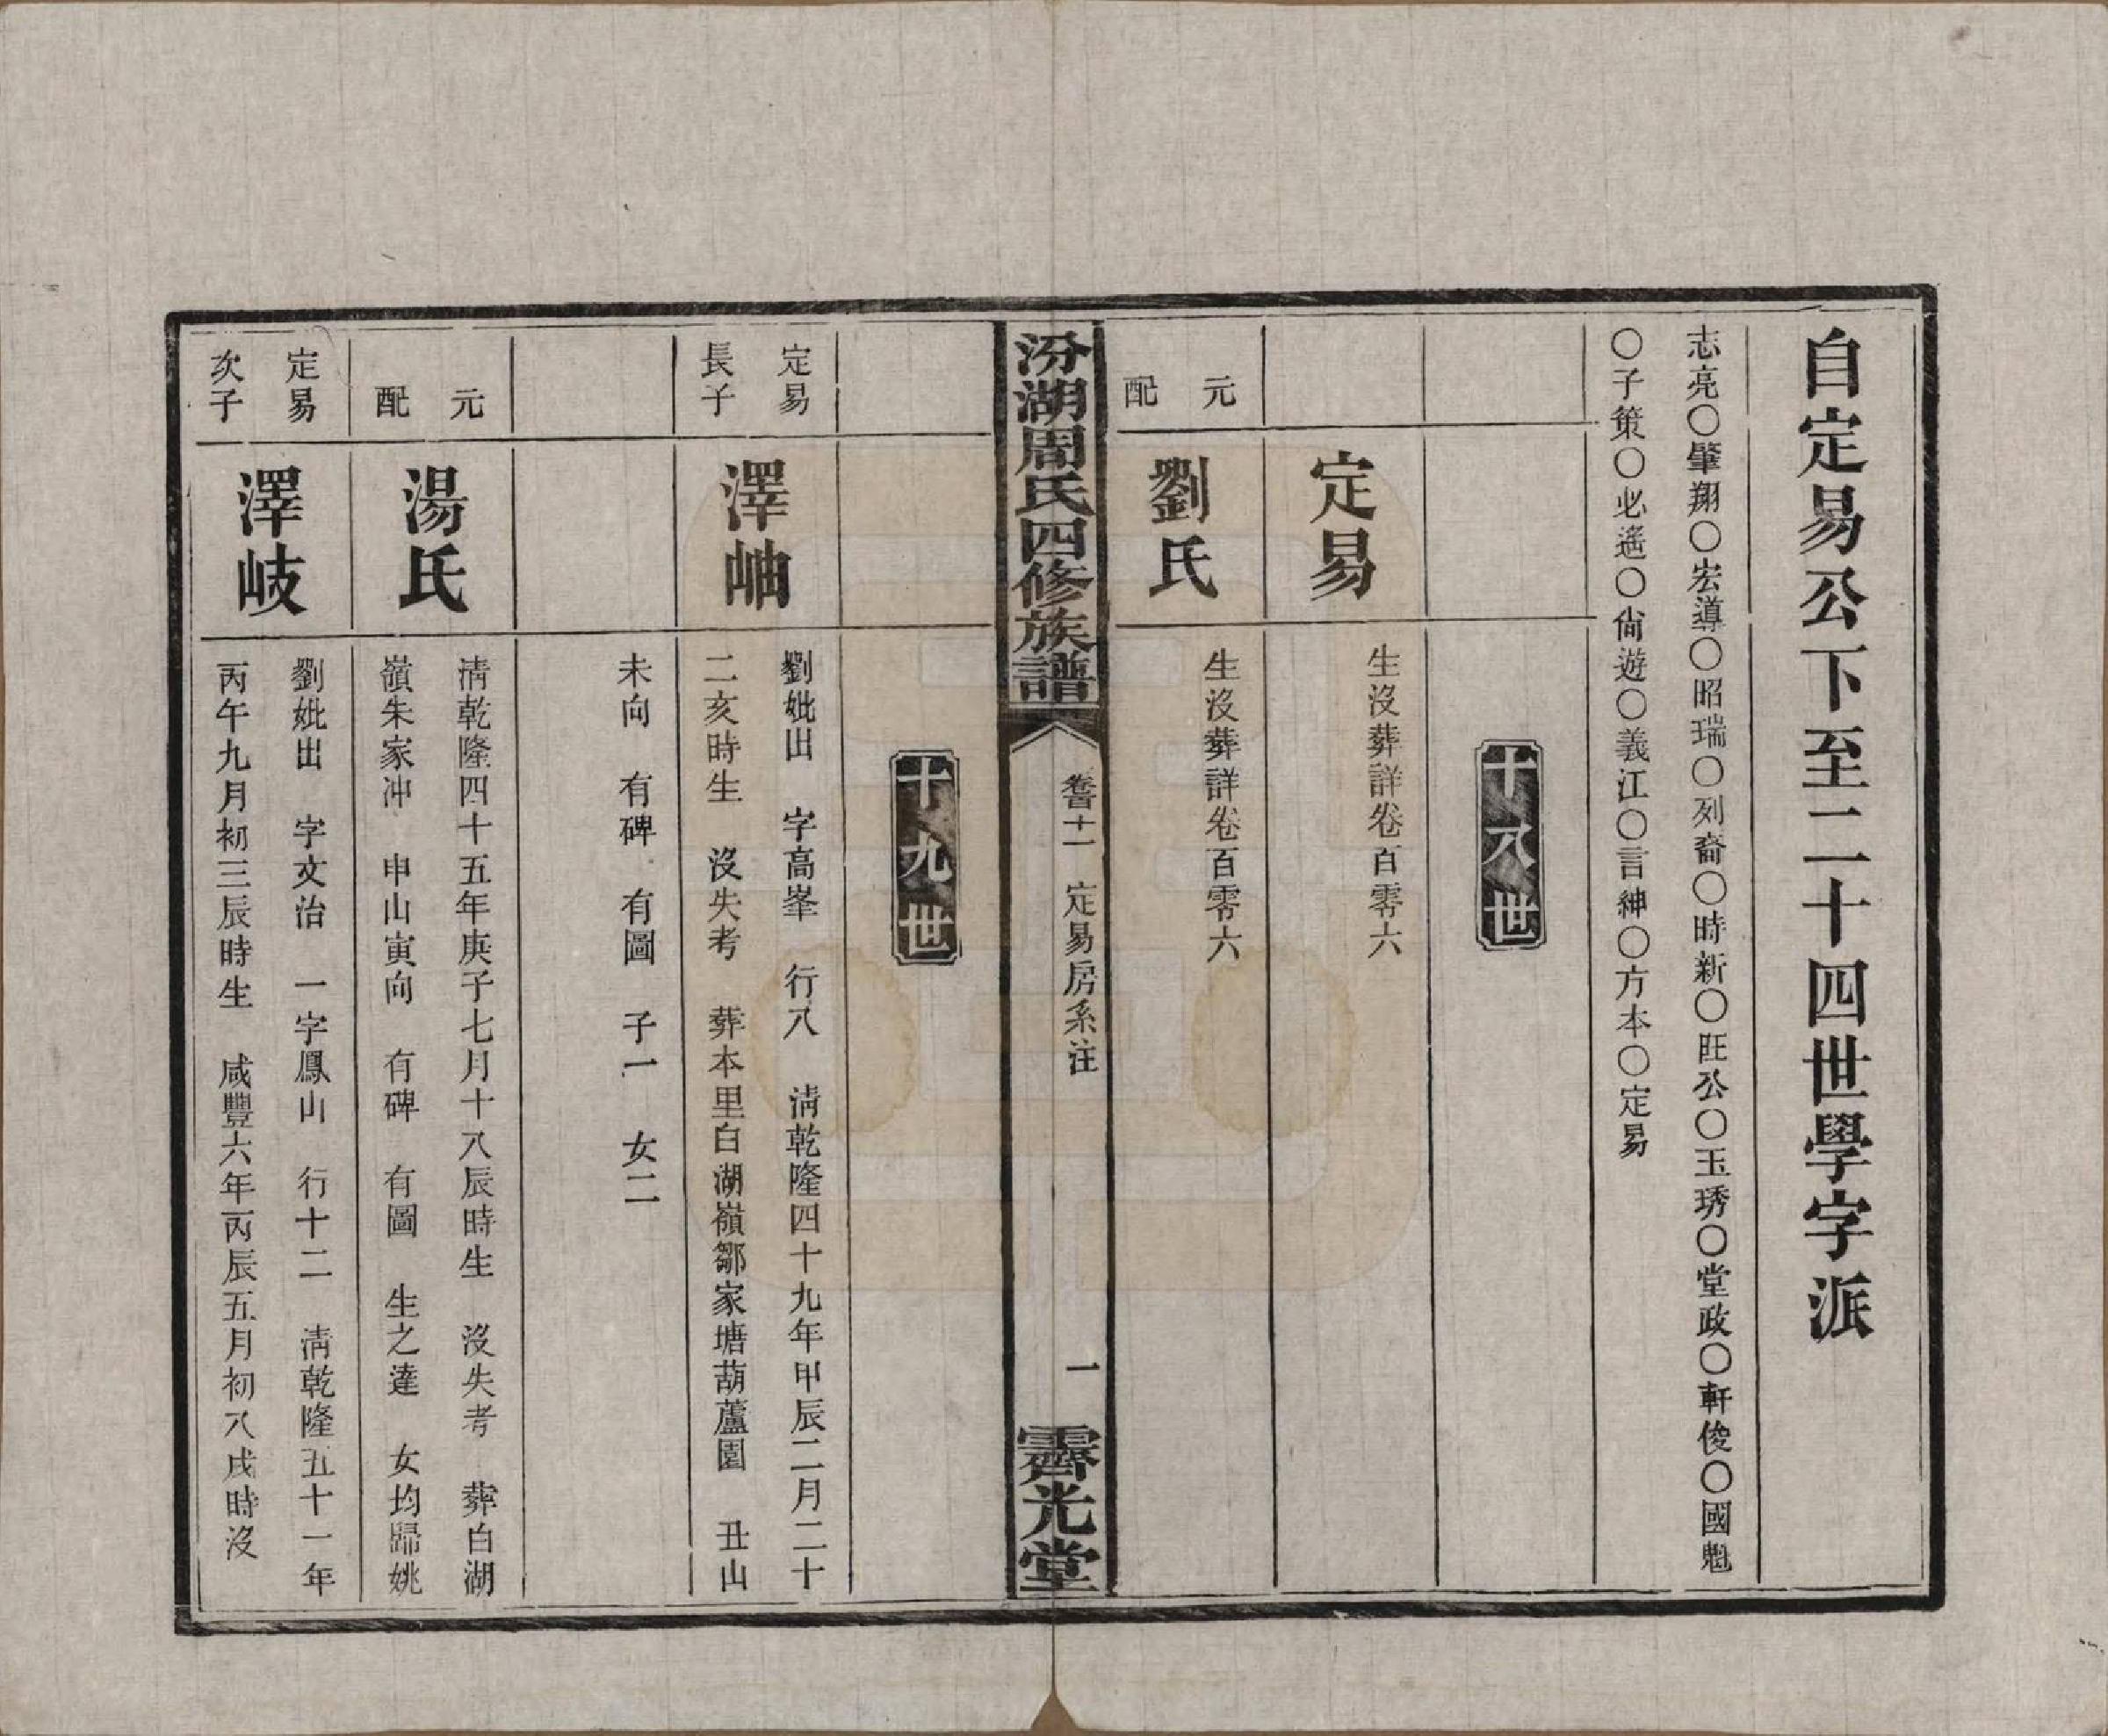 自定易公下至二十四世學字派
志亮〇肇翔〇宏導〇昭瑞〇列裔〇時新〇旺公〇玉琇〇堂政〇軒俊〇國魁
〇子策〇必遙〇尙遊〇義江〇言紳〇方本〇定易
十八世
定易
生沒葬詳卷百零六
元配
劉氏
生沒葬詳卷百零六
汾湖周氏四修族譜
卷百十一 定易房系注
一
霽光堂
十九世
定易
長子
澤岫
劉妣出 字高峯 行八 淸乾隆四十九年甲辰二月二十
二亥時生 沒失考 葬本里白湖嶺鄒家塘葫蘆園 丑山
未向 有碑 有圖 子一 女二
元配
湯氏
淸乾隆四十五年庚子七月十八辰時生 沒失考 葬白湖
嶺朱家冲 申山寅向 有碑 有圖 生之達 女均歸姚
定易
次子
澤岐
劉妣出 字文治 一字鳳山 行十二 淸乾隆五十一年
丙午九月初三辰時生 咸豐六年丙辰五月初八戌時沒